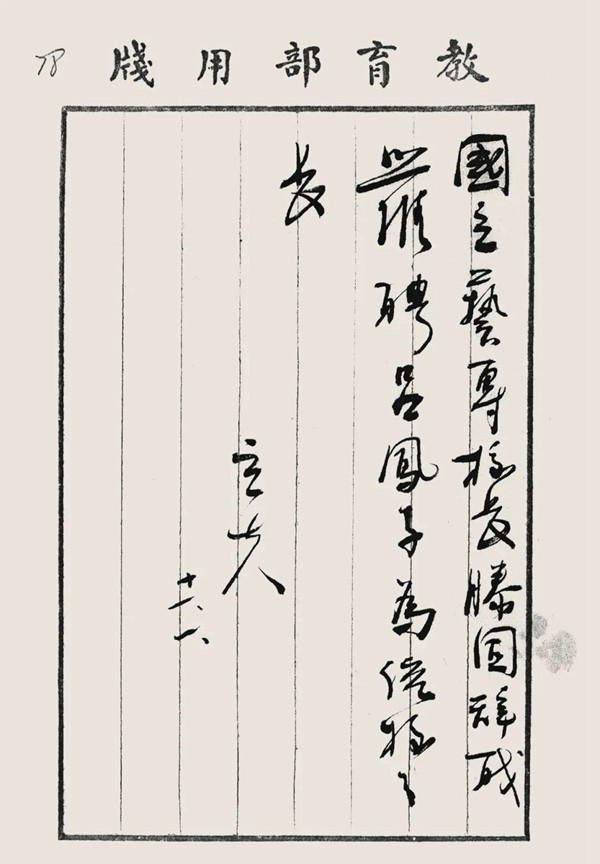 教育部用牋
國立藝專校長滕固辭職
照准聘呂鳳子為該校々
長
立夫
十一、一、